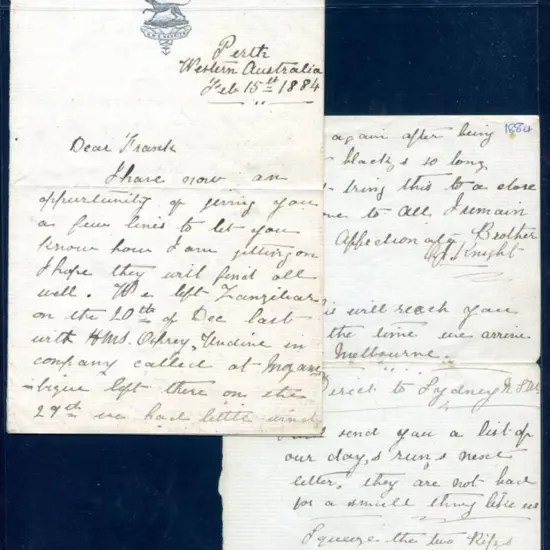 Perth
Western Australia
Feb 15th 1884
Dear Frank
I have now an
oppurtunity of giving you
a few lines to let you
know how I am getting on
I hope they will find all
well. We left Zanzibar
on the 20th of Dec last
with HMS. Osprey, Undine in
company called at Mozam
=bique left there on the
29th we had little wind
1884
again after being
blacks so long
bring this to a close
me to All I remain
Affectionate Brother
Knight
is will reach you
the time we arrive
Melbourne.
to Sydney N.S.W.
send you a list of
our day,s run,s next
letter, they are not bad
for a small thing like us
Squeeze the two Kids